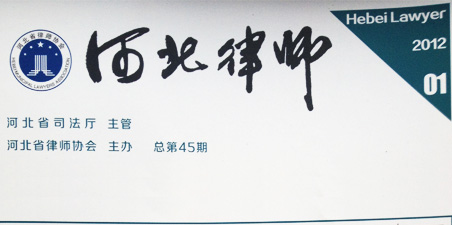 河北省律师协会
河北律师
Hebei Lawyer
2012
01
河北省司法厅 主管
河北省律师协会 主办 总第45期